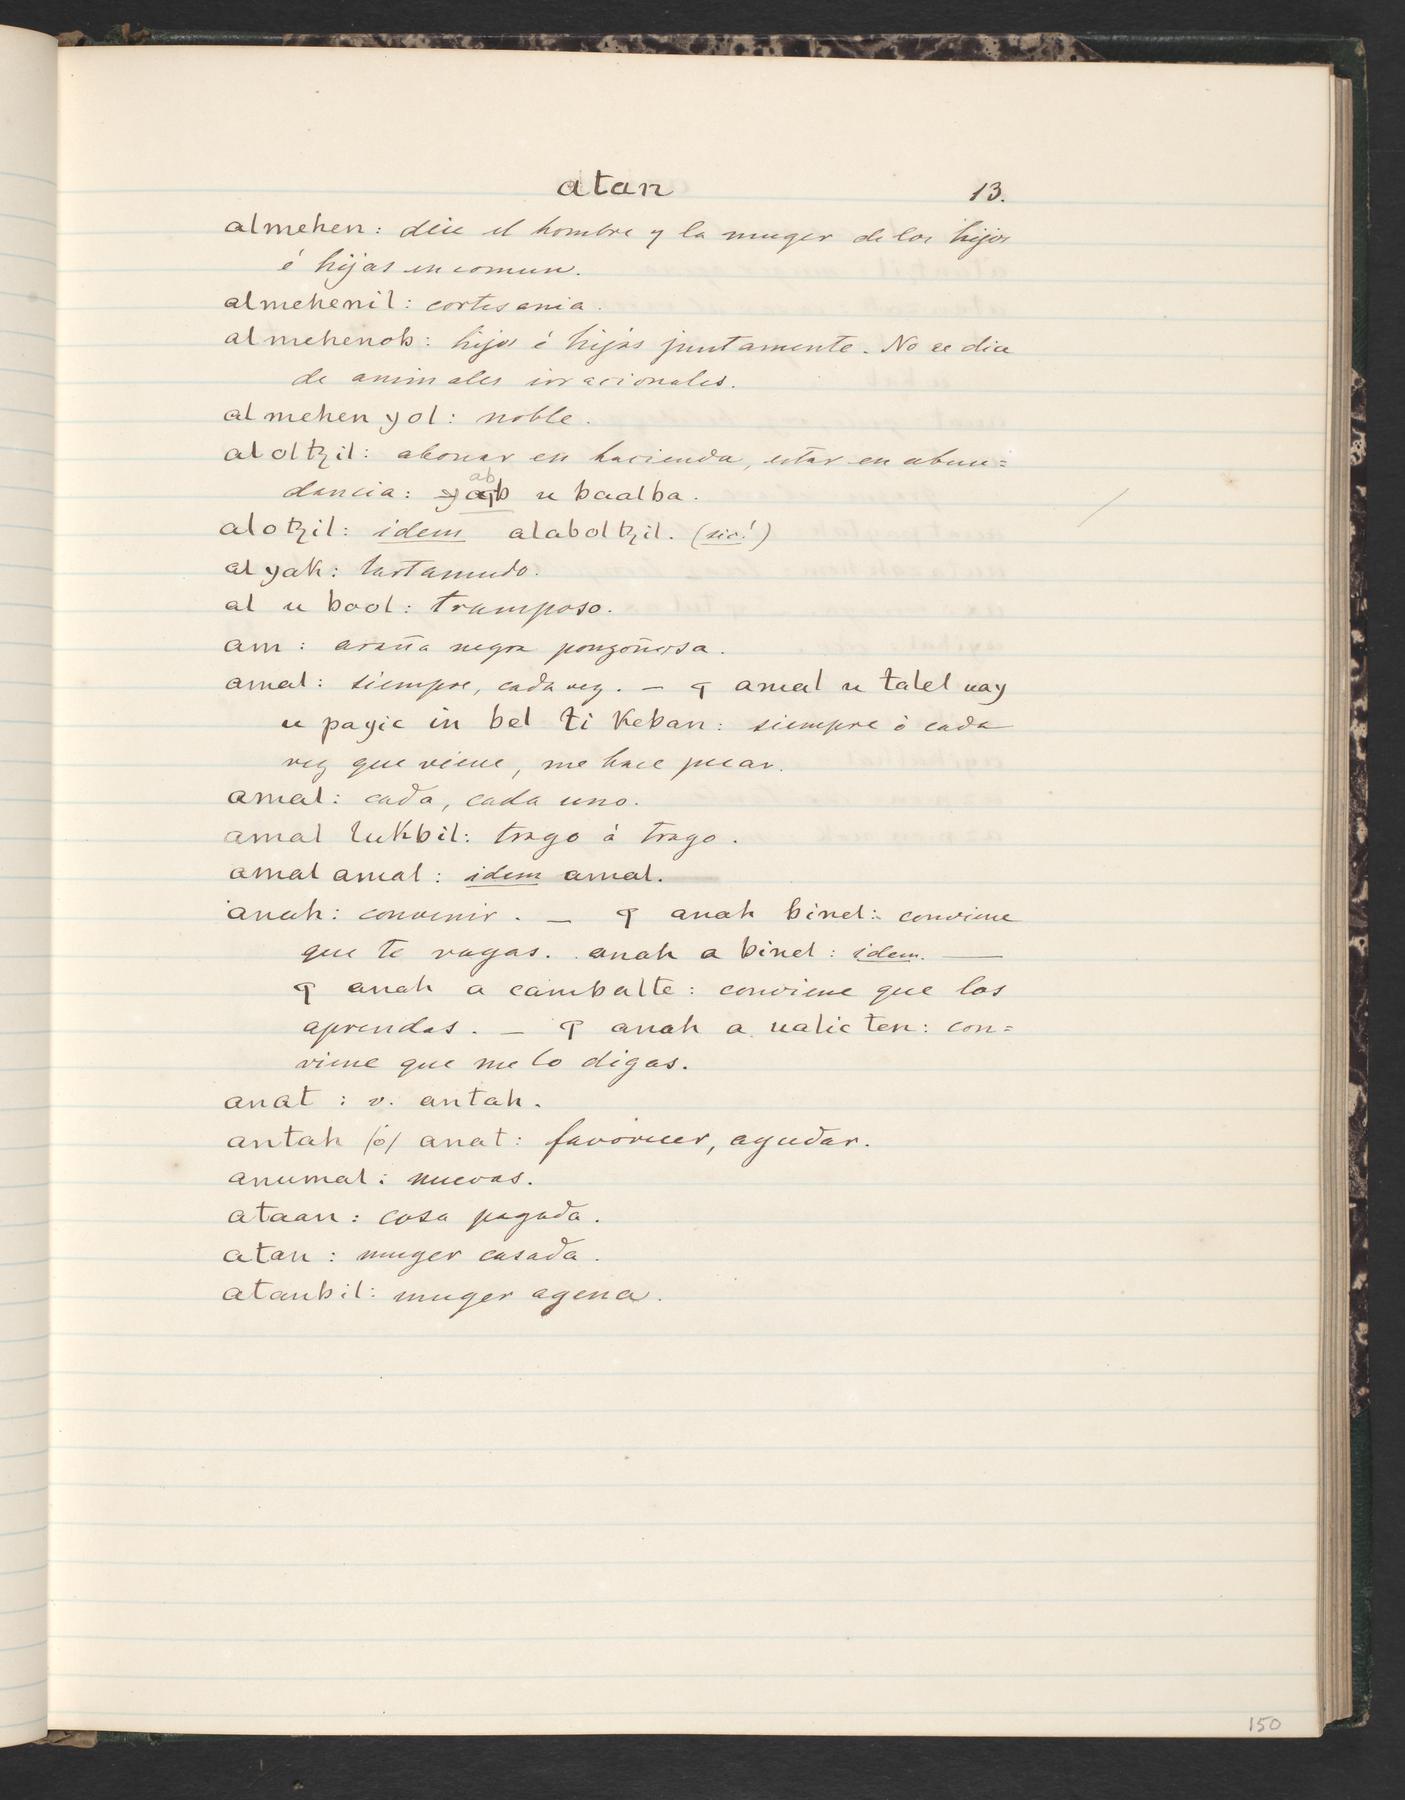 atan 13.
almehen: dice el hombre y la muger de los hijos
é hijas en comun.
almehenil: cortesania.
almehenob: hijos é hijas juntamente. No se dice
de animales irracionales.
almehen yol: noble.
al oltzil: abonar en hacienda, estar en abun=
dancia: yab u baalba.
alotzil: idem alaboltzil. (sic!)
al yak: tartamudo.
al u bool: tramposo.
am: araña negra ponzoñosa.
amal: siempre, cada vez. — ꟼ amal u talel uay
u payic in bel ti keban: siempre ó cada
vez que viene, me hace pecar.
amal: cada, cada uno.
amal lukbil: trago á trago.
amal amal: idem amal.
anah: convenir. — ꟼ anah binel: conviene
que te vagas. anah a binel: idem. —
ꟼ anah a cambalte: conviene que los
aprendas. — ꟼ anah a ualic ten: con=
viene que me lo digas.
anat: v. antah.
antah /ó/ anat: favorecer, ayudar.
anumal: nuevas.
ataan: cosa pagada.
atan: muger casada.
atanbil: muger agena.
150